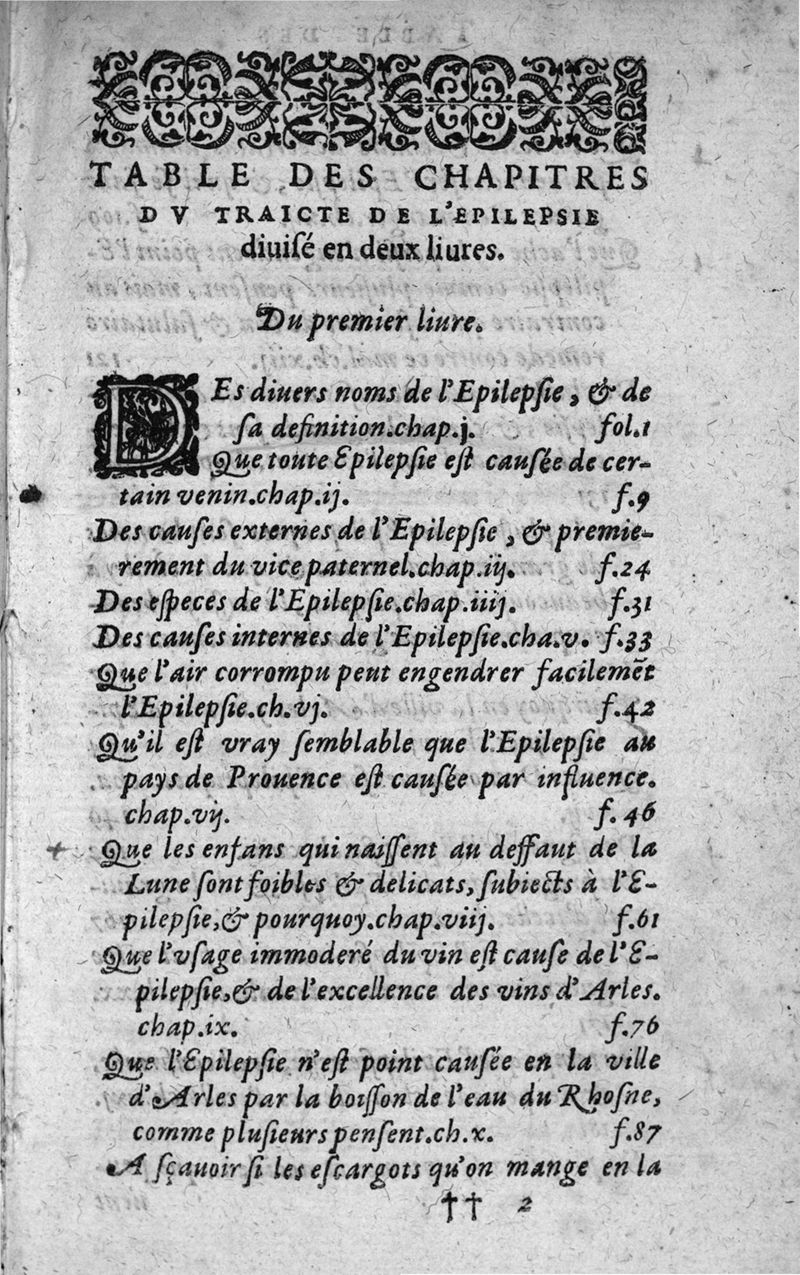 TABLE DES CHAPITRES
DV TRAICTE DE L'EPILEPSIE
diuiſé en deux liures.
Du premier liure.
DEs diuers noms de l'Epilepſie, & de
ſa definition.chap.j. fol.1
Que toute Epilepſie eſt cauſée de cer-
tain venin.chap.ij. f.9
Des cauſes externes de l'Epilepſie, & premie-
rement du vice paternel.chap.iij. f.24
Des eſpeces de l'Epilepſie.chap.iiij. f.31
Des cauſes internes de l'Epilepſie.cha.v. f.33
Que l'air corrompu peut engendrer facilemẽt
l'Epilepſie.ch.vj. f.42
Qu'il eſt vray ſemblable que l'Epilepſie au
pays de Prouence eſt cauſée par influence.
chap.vij. f.46
Que les enfans qui naiſſent au deffaut de la
Lune ſont foibles & delicats, ſubiects à l'E-
pilepſie,& pourquoy.chap.viij. f.61
Que l'vſage immoderé du vin eſt cauſe de l'E-
pilepſie,& de l'excellence des vins d'Arles.
chap.ix. f.76
Que l'Epilepſie n'eſt point cauſée en la ville
d'Arles par la boiſſon de l'eau du Rhoſne,
comme pluſieurs penſent.ch.x. f.87
A ſçauoir ſi les eſcargots qu'on mange en la
†† 2